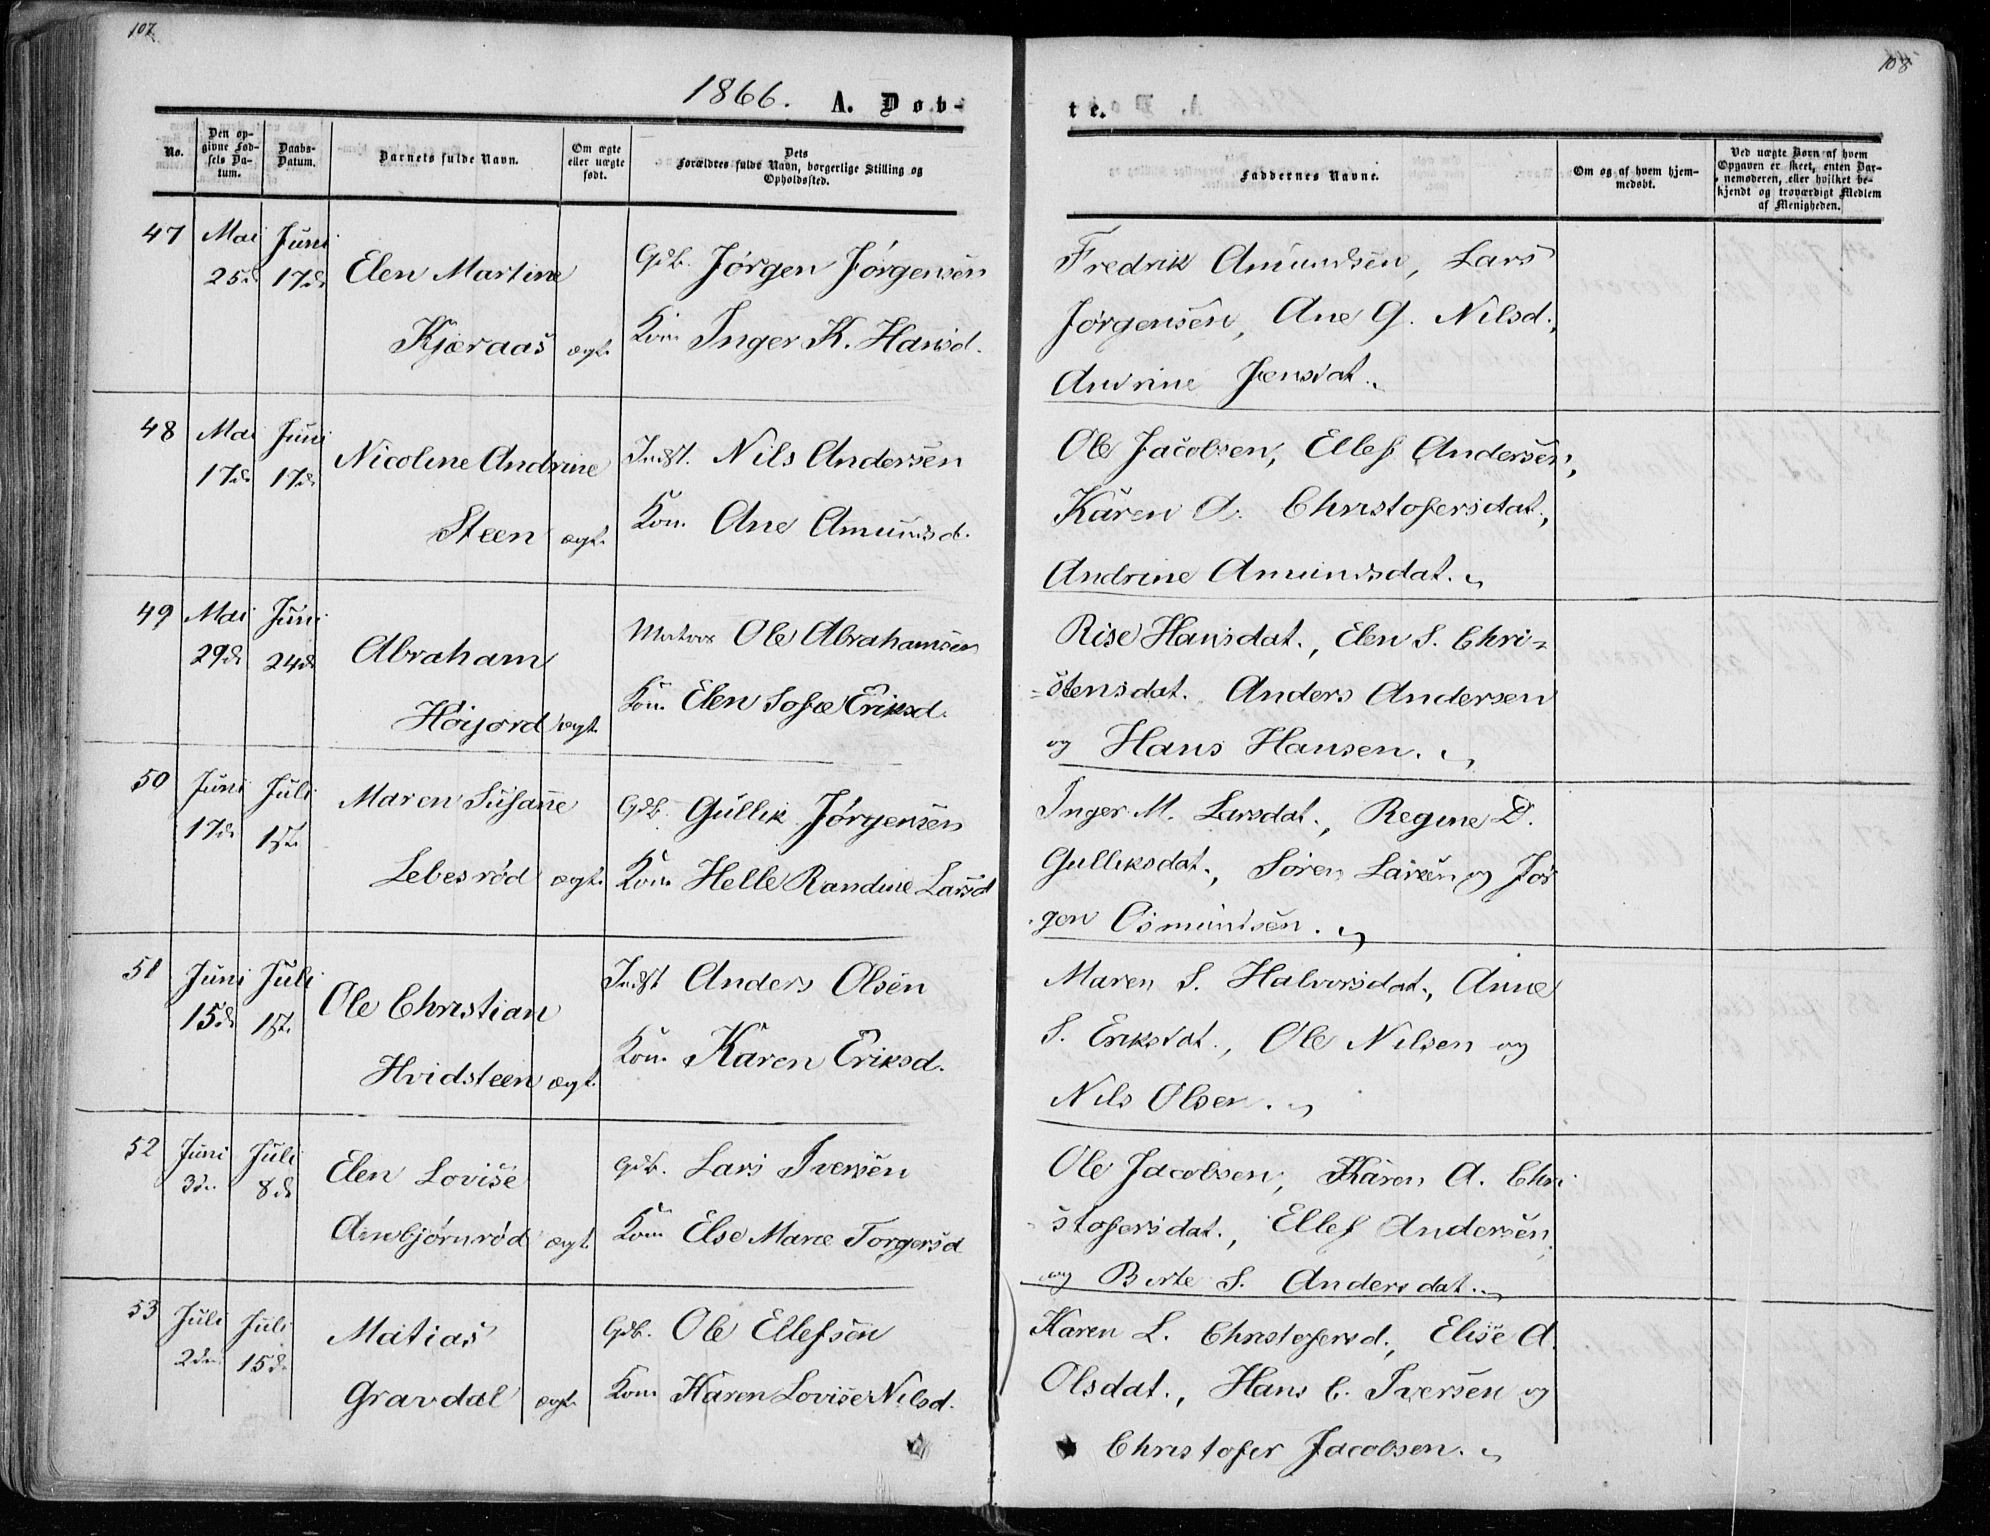 107
108
1866. A. Døb-
te.
No.
Den op-
givne Fød-
sels Da-
tum.
Daabs-
Datum.
Barnets fulde Navn.
Om ægte
eller uægte
født.
Dets
Forældres fulde Navn, borgerlige Stilling og
Opholdssted.
Faddernes Navne.
Om og af hvem hjem-
medøbt.
Ved uægte Børn af hvem
Opgaven er skeet, enten Bar-
nemoderen, eller hvilket be-
kjendt og troværdigt Medlem
af Menigheden.
47 Mai Juni
25d. 17d.
Elen Martine
Kjæraas ægt.
Gdb. Jørgen Jørgensen
Kon. Inger K. Hansd.
Fredrik Amundsen, Lars
Jørgensen, Ane G. Nilsd.,
Andrine Jensdat.
48 Mai Juni
17d. 17d.
Nicoline Andrine
Steen ægt.
Indst. Nils Andersen
Kon. Ane Amundsd.
Ole Jacobsen, Ellef Andersen,
Karen A. Christofersdat.,
Andrine Amundsdat.
49 Mai Juni
29d. 24d.
Abraham
Høijord ægt.
Matros Ole Abrahamsen
Kon. Elen Sofie Eriksd.
Rise Hansdat., Elen S. Chri-
stensdat. Anders Andersen
og Hans Hansen.
50 Juni Juli
17d. 1st.
Maren Susanne
Lebesrød ægt.
Gdb. Gullik Jørgensen
Kon. Helle Randine Larsd
Inger M. Larsdat., Regine D.
Gulliksdat., Søren Larsen og Jør
gen Osmundsen.
51 Juni Juli
15d. 1st.
Ole Christian
Hvidsteen ægt.
Indst Anders Olsen
Kon. Karen Eriksd.
Maren S. Halvorsdat., Anne
S. Eriksdat., Ole Nilsen og
Nils Olsen.
52 Juni Juli
3d. 8d.
Elen Lovise
Anbjørnrød ægt.
Gdb. Lars Iversen
Kon. Else Marie Torgersd
Ole Jacobsen, Karen A. Chri
stofersdat., Ellef Andersen,
og Berte S. Andersdat.
53 Juli Juli
2d. 15d.
Matias
Gravdal ægt.
Gdb. Ole Ellefsen
Kon. Karen Lovise Nilsd.
Karen L. Christofersd., Elise A.
Olsdat., Hans C. Iversen og
Christofer Jacobsen.